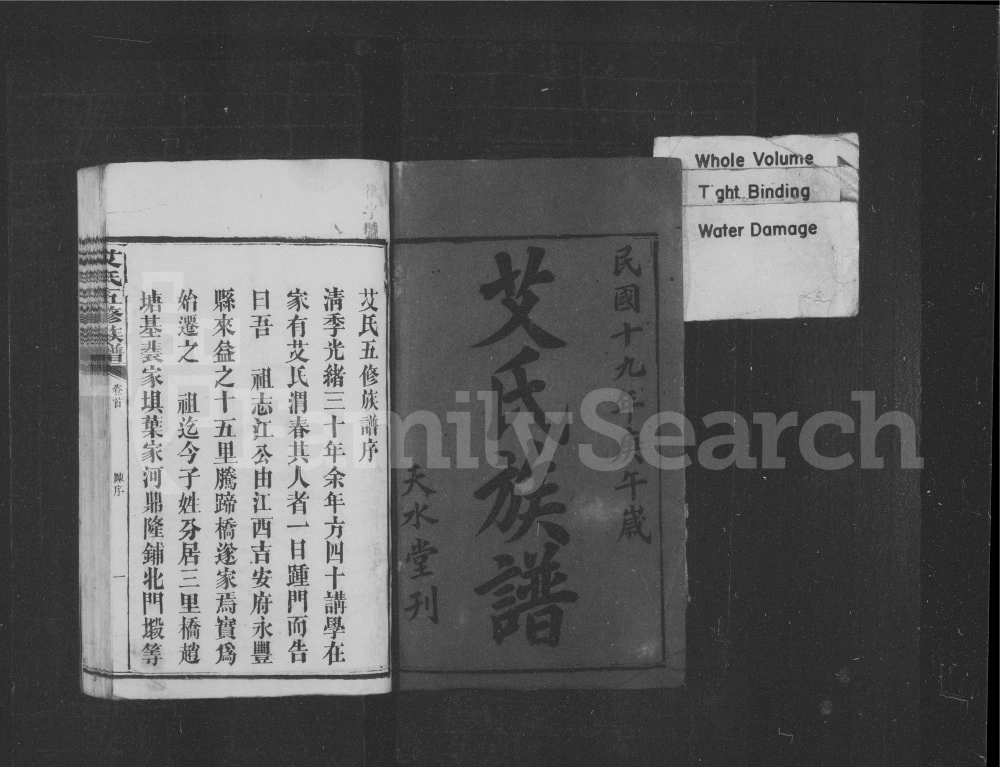 民國十九年庚午歲
艾氏族譜
天水堂刊
艾氏五修族譜序
清季光緒三十年余年方四十講學在
家有艾氏渭春其人者一日踵門而告
曰吾 祖志江公由江西吉安府永豐
縣來益之十五里騰蹄橋遂家焉實爲
始遷之 祖迄今子姓分居三里橋趙
塘基裴家埧葉家河鼎隆鋪北門塅等
艾氏五修族譜
卷首
陳序
一
Whole Volume
Tight Binding
Water Damage
FamilySearch